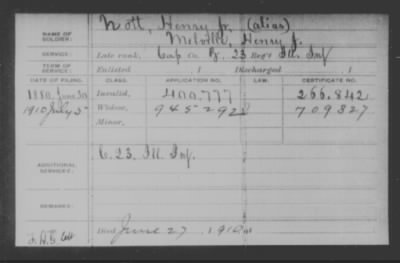 Nott, Henry Jr. (alias)
NAME OF SOLDIER:
Melville, Henry J.
SERVICE:
Late rank, Cap Co. 23 Reg't Ill. Inf
TERM OF SERVICE:
Enlisted 1 Discharged 1
DATE OF FILING. CLASS. APPLICATION NO. LAW. CERTIFICATE NO.
1880, June 30 Invalid, 400.777 266.842
1910 July 5 Widow, 945292 709327
Minor,
ADDITIONAL SERVICES:
C. 23. Ill. Inf.
REMARKS:
Died June 27 1910 at